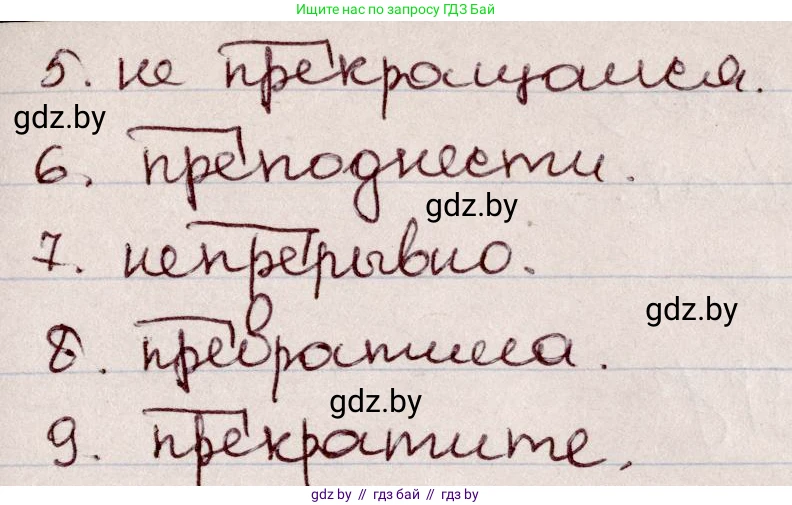 Ищите нас по запросу ГДЗ Бай
5. не прекращался.
gdz.by
6. преподнести.
gdz.by
7. непрерывно.
gdz.by
8. превратила.
gdz.by
9. прекратите.
gdz.by // гдз бай // gdz.by